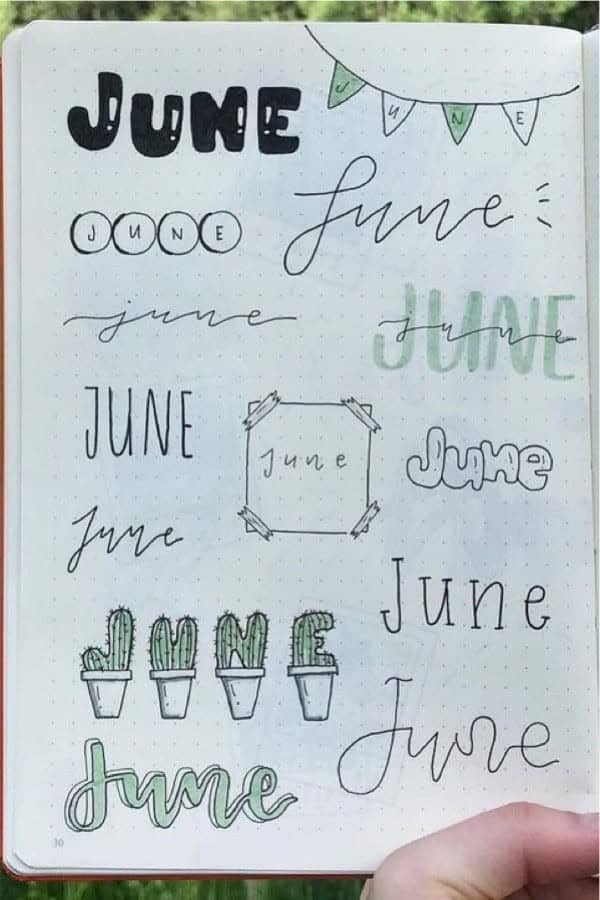 JUNE
JUNE
JUNE
June
june
JUNE
june
JUNE
june
June
June
June
JUNE
June
June
30